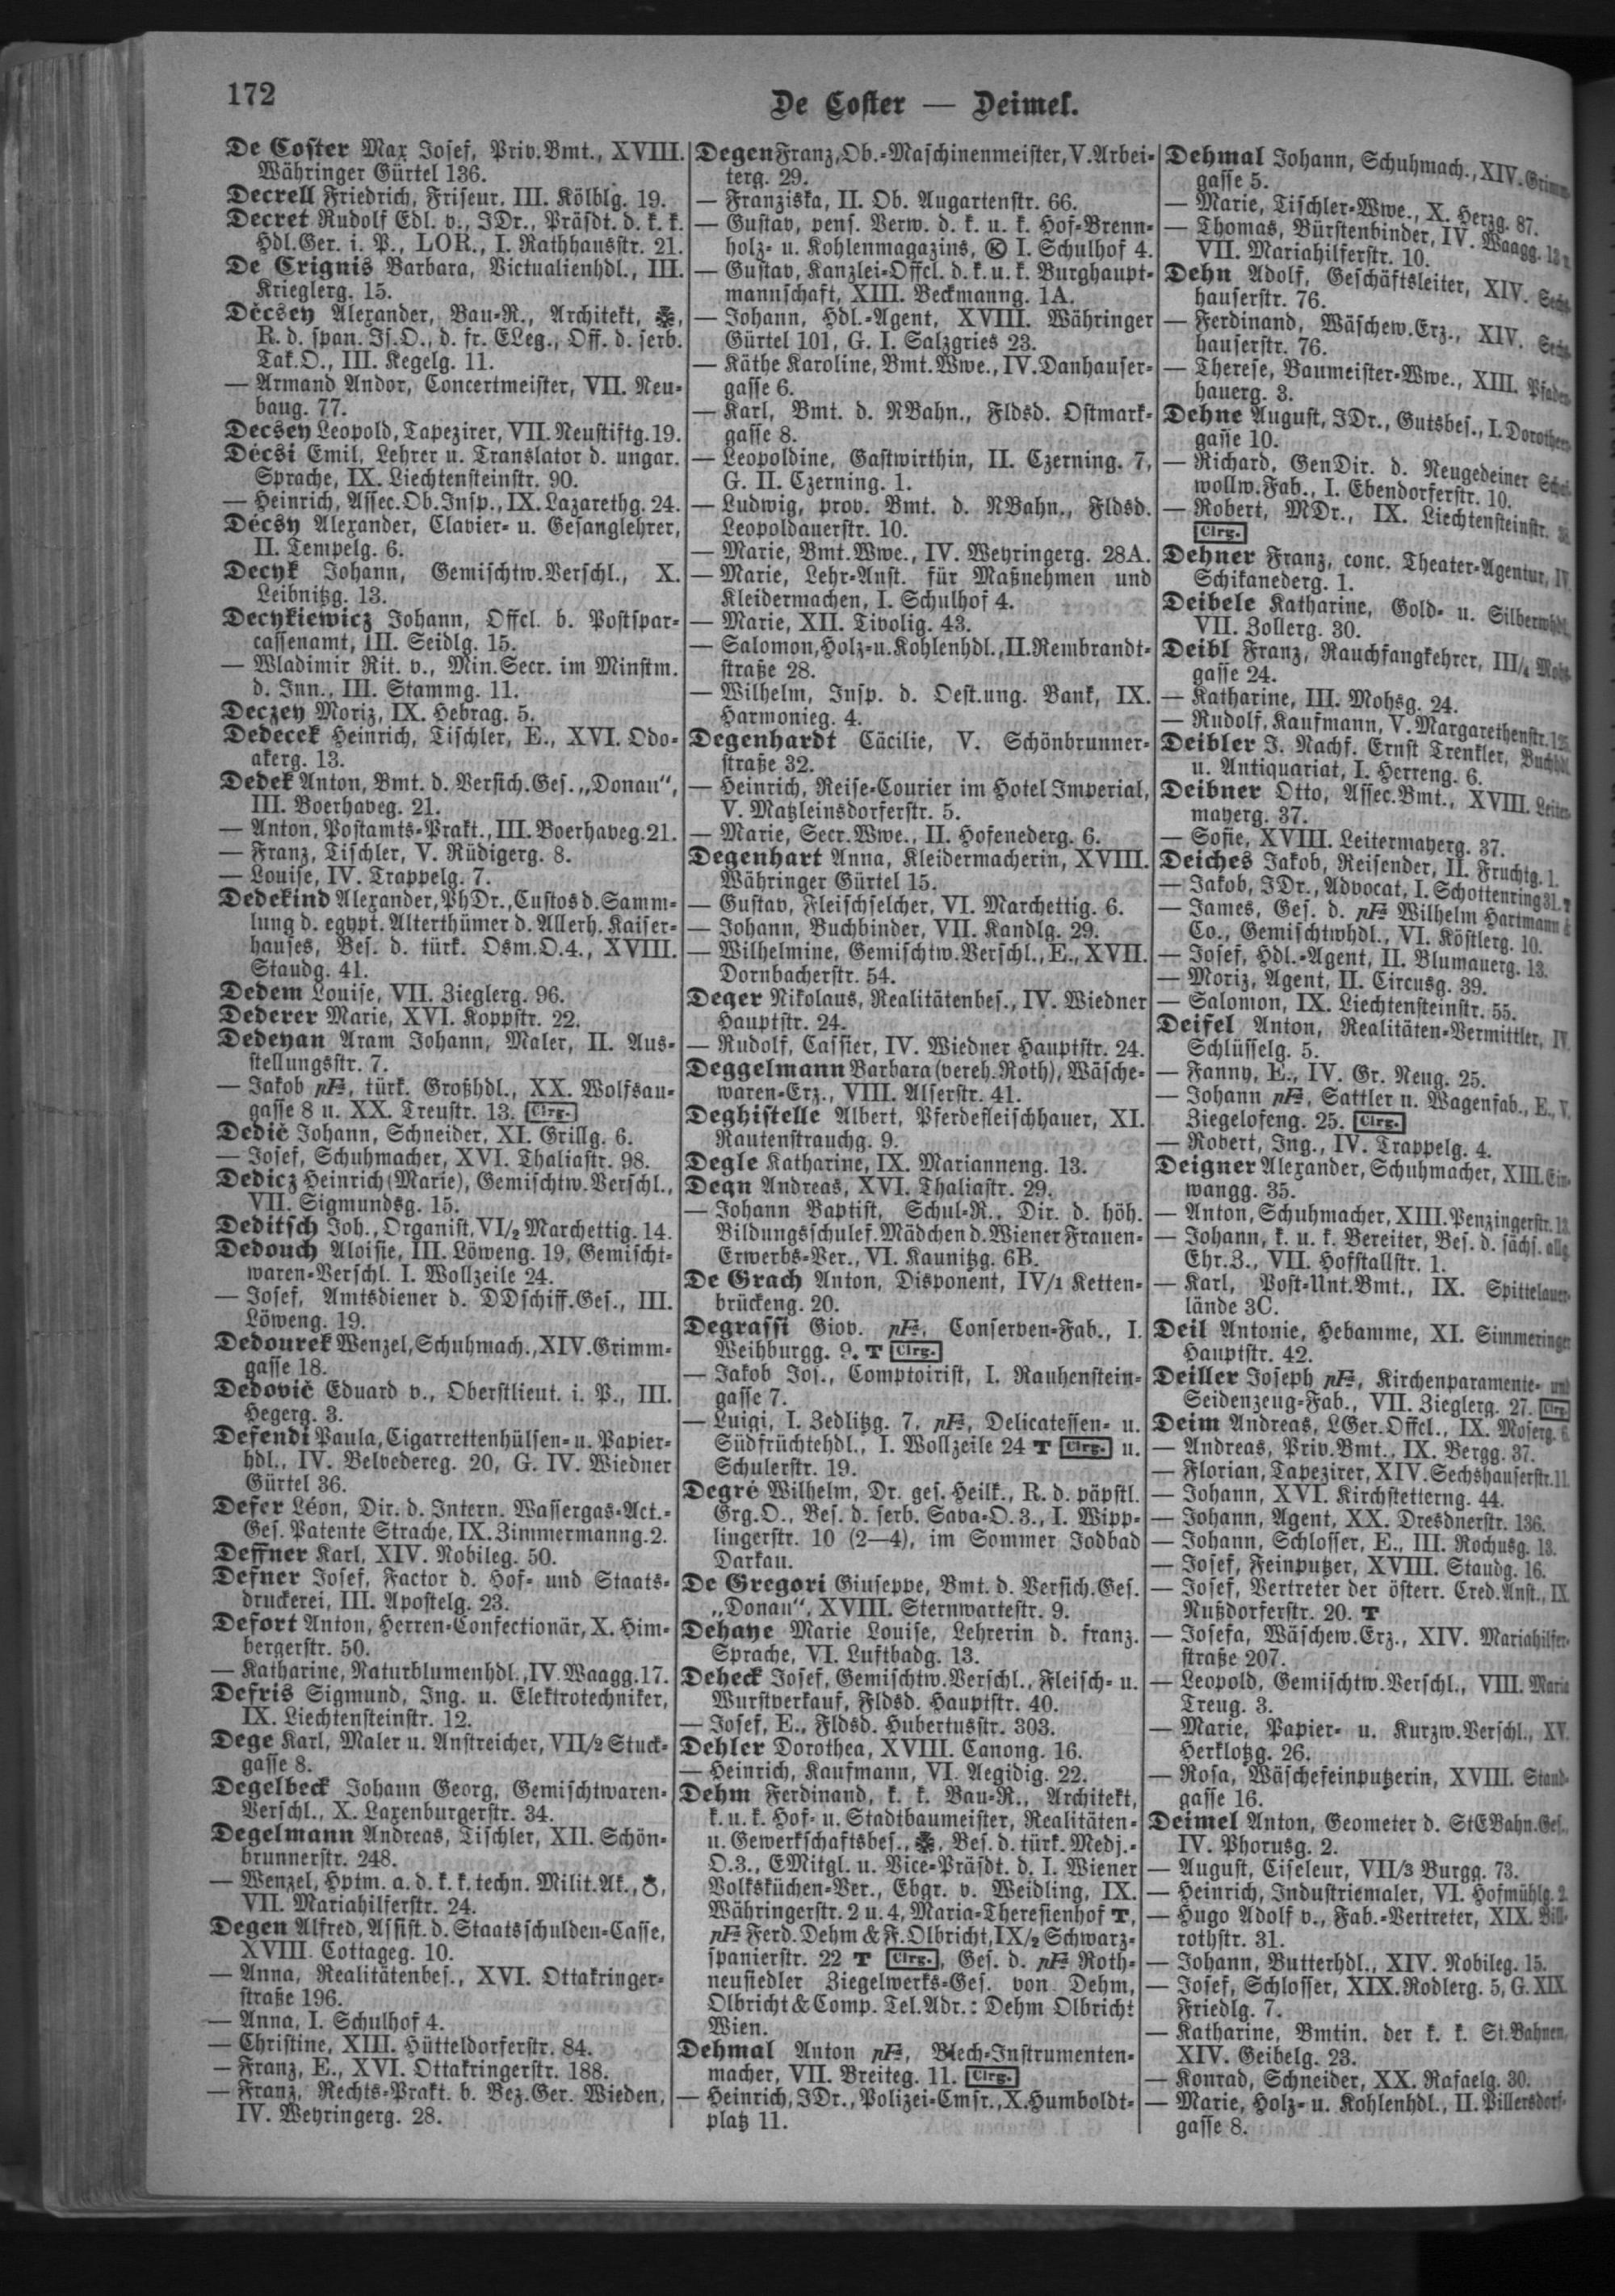 172
De Coster — Deimel.
De Coster Max Josef, Priv.Bmt., XVIII.
Währinger Gürtel 136.
Decrell Friedrich, Friseur, III. Kölblg. 19.
Decret Rudolf Edl. v., JDr., Präsdt. d. k. k.
Hdl.Ger. i. P., LOR., I. Rathhausstr. 21.
De Crignis Barbara, Victualienhdl., III.
Krieglerg. 15.
Décsey Alexander, Bau-R., Architekt,
R. d. span. Is.O., d. fr. ELeg., Off. d. serb.
Tak.O., III. Kegelg. 11.
— Armand Andor, Concertmeister, VII. Neu-
baug. 77.
Decsey Leopold, Tapezirer, VII. Neustiftg. 19.
Décsi Emil, Lehrer u. Translator d. ungar.
Sprache, IX. Liechtensteinstr. 90.
— Heinrich, Assec.Ob.Insp., IX. Lazarethg. 24.
Décsy Alexander, Clavier- u. Gesanglehrer,
II. Tempelg. 6.
Decyk Johann, Gemischtw.Verschl., X.
Leibnitzg. 13.
Decykiewicz Johann, Offcl. b. Postspar-
cassenamt, III. Seidlg. 15.
— Wladimir Rit. v., Min.Secr. im Minstm.
d. Inn., III. Stammg. 11.
Deczey Moriz, IX. Hebrag. 5.
Dedecek Heinrich, Tischler, E., XVI. Odo-
akerg. 13.
Dedek Anton, Bmt. d. Versich.Ges. „Donau“,
III. Boerhaveg. 21.
— Anton, Postamts-Prakt., III. Boerhaveg. 21.
— Franz, Tischler, V. Rüdigerg. 8.
— Louise, IV. Trappelg. 7.
Dedekind Alexander, PhDr., Custos d. Samm-
lung d. egypt. Alterthümer d. Allerh. Kaiser-
hauses, Bes. d. türk. Osm.O.4., XVIII.
Staudg. 41.
Dedem Louise, VII. Zieglerg. 96.
Dederer Marie, XVI. Koppstr. 22.
Dedeyan Aram Johann, Maler, II. Aus-
stellungsstr. 7.
— Jakob pFa, türk. Großhdl., XX. Wolfsau-
gasse 8 u. XX. Treustr. 13. Clrg.
Dedič Johann, Schneider, XI. Grillg. 6.
— Josef, Schuhmacher, XVI. Thaliastr. 98.
Dedicz Heinrich (Marie), Gemischtw.Verschl.,
VII. Sigmundsg. 15.
Deditsch Joh., Organist, VI/2 Marchettig. 14.
Dedouch Aloisie, III. Löweng. 19, Gemischt-
waren-Verschl. I. Wollzeile 24.
— Josef, Amtsdiener d. DDschiff.Ges., III.
Löweng. 19.
Dedourek Wenzel, Schuhmach., XIV. Grimm-
gasse 18.
Dedovič Eduard v., Oberstlieut. i. P., III.
Hegerg. 3.
Defendi Paula, Cigarrettenhülsen- u. Papier-
hdl., IV. Belvedereg. 20, G. IV. Wiedner
Gürtel 36.
Defer Léon, Dir. d. Intern. Wassergas-Act.-
Ges. Patente Strache, IX. Zimmermanng. 2.
Deffner Karl, XIV. Nobileg. 50.
Defner Josef, Factor d. Hof- und Staats-
druckerei, III. Apostelg. 23.
Defort Anton, Herren-Confectionär, X. Him-
bergerstr. 50.
— Katharine, Naturblumenhdl., IV. Waagg. 17.
Defris Sigmund, Ing. u. Elektrotechniker,
IX. Liechtensteinstr. 12.
Dege Karl, Maler u. Anstreicher, VII/2 Stuck-
gasse 8.
Degelbeck Johann Georg, Gemischtwaren-
Verschl., X. Laxenburgerstr. 34.
Degelmann Andreas, Tischler, XII. Schön-
brunnerstr. 248.
— Wenzel, Hptm. a. d. k. k. techn. Milit.Ak.,
VII. Mariahilferstr. 24.
Degen Alfred, Assist. d. Staatsschulden-Casse,
XVIII. Cottageg. 10.
— Anna, Realitätenbes., XVI. Ottakringer-
straße 196.
— Anna, I. Schulhof 4.
— Christine, XIII. Hütteldorferstr. 84.
— Franz, E., XVI. Ottakringerstr. 188.
— Franz, Rechts-Prakt. b. Bez.Ger. Wieden,
IV. Weyringerg. 28.
Degen Franz, Ob.-Maschinenmeister, V. Arbei-
terg. 29.
— Franziska, II. Ob. Augartenstr. 66.
— Gustav, pens. Verw. d. k. u. k. Hof-Brenn-
holz- u. Kohlenmagazins, Ⓚ I. Schulhof 4.
— Gustav, Kanzlei-Offcl. d. k. u. k. Burghaupt-
mannschaft, XIII. Beckmanng. 1A.
— Johann, Hdl.-Agent, XVIII. Währinger
Gürtel 101, G. I. Salzgries 23.
— Käthe Karoline, Bmt.Wwe., IV. Danhauser-
gasse 6.
— Karl, Bmt. d. NBahn., Fldsd. Ostmark-
gasse 8.
— Leopoldine, Gastwirthin, II. Czerning. 7,
G. II. Czerning. 1.
— Ludwig, prov. Bmt. d. NBahn., Fldsd.
Leopoldauerstr. 10.
— Marie, Bmt.Wwe., IV. Weyringerg. 28A.
— Marie, Lehr-Anst. für Maßnehmen und
Kleidermachen, I. Schulhof 4.
— Marie, XII. Tivolig. 43.
— Salomon, Holz- u. Kohlenhdl., II. Rembrandt-
straße 28.
— Wilhelm, Insp. d. Oest.ung. Bank, IX.
Harmonieg. 4.
Degenhardt Cäcilie, V. Schönbrunner-
straße 32.
— Heinrich, Reise-Courier im Hotel Imperial,
V. Matzleinsdorferstr. 5.
— Marie, Secr.Wwe., II. Hofenederg. 6.
Degenhart Anna, Kleidermacherin, XVIII.
Währinger Gürtel 15.
— Gustav, Fleischselcher, VI. Marchettig. 6.
— Johann, Buchbinder, VII. Kandlg. 29.
— Wilhelmine, Gemischtw.Verschl., E., XVII.
Dornbacherstr. 54.
Deger Nikolaus, Realitätenbes., IV. Wiedner
Hauptstr. 24.
— Rudolf, Cassier, IV. Wiedner Hauptstr. 24.
Deggelmann Barbara (vereh. Roth), Wäsche-
waren-Erz., VIII. Alserstr. 41.
Deghistelle Albert, Pferdefleischhauer, XI.
Rautenstrauchg. 9.
Degle Katharine, IX. Marianneng. 13.
Degn Andreas, XVI. Thaliastr. 29.
— Johann Baptist, Schul-R., Dir. d. höh.
Bildungsschule f. Mädchen d. Wiener Frauen-
Erwerbs-Ver., VI. Kaunitzg. 6B.
De Grach Anton, Disponent, IV/1 Ketten-
brückeng. 20.
Degrassi Giov. pFa, Conserven-Fab., I.
Weihburgg. 9. T Clrg.
— Jakob Jos., Comptoirist, I. Rauhenstein-
gasse 7.
— Luigi, I. Zedlitzg. 7. pFa, Delicatessen- u.
Südfrüchtehdl., I. Wollzeile 24 T Clrg. u.
Schulerstr. 19.
Degré Wilhelm, Dr. ges. Heilk., R. d. päpstl.
Grg.O., Bes. d. serb. Sava-O.3., I. Wipp-
lingerstr. 10 (2—4), im Sommer Jodbad
Darkau.
De Gregori Giuseppe, Bmt. d. Versich.Ges.
„Donau“, XVIII. Sternwartestr. 9.
Dehaye Marie Louise, Lehrerin d. franz.
Sprache, VI. Luftbadg. 13.
Deheck Josef, Gemischtw.Verschl., Fleisch- u.
Wurstverkauf, Fldsd. Hauptstr. 40.
— Josef, E., Fldsd. Hubertusstr. 303.
Dehler Dorothea, XVIII. Canong. 16.
— Heinrich, Kaufmann, VI. Aegidig. 22.
Dehm Ferdinand, k. k. Bau-R., Architekt,
k. u. k. Hof- u. Stadtbaumeister, Realitäten-
u. Gewerkschaftsbes., Bes. d. türk. Medj.-
O.3., EMitgl. u. Vice-Präsdt. d. I. Wiener
Volksküchen-Ver., Ebgr. v. Weidling, IX.
Währingerstr. 2 u. 4, Maria-Theresienhof T,
pFa Ferd. Dehm & F. Olbricht, IX/2 Schwarz-
spanierstr. 22 T Clrg., Ges. d. pFa Roth-
neusiedler Ziegelwerks-Ges. von Dehm,
Olbricht & Comp. Tel.Adr.: Dehm Olbricht
Wien.
Dehmal Anton pFa, Blech-Instrumenten-
macher, VII. Breiteg. 11. Clrg.
— Heinrich, JDr., Polizei-Cmsr., X. Humboldt-
platz 11.
Dehmal Johann, Schuhmach., XIV. Grimm-
gasse 5.
— Marie, Tischler-Wwe., X. Herzg. 87.
— Thomas, Bürstenbinder, IV. Waagg. 13
VII. Mariahilferstr. 10.
Dehn Adolf, Geschäftsleiter, XIV. Sechs-
hauserstr. 76.
— Ferdinand, Wäschew.Erz., XIV. Sechs-
hauserstr. 76.
— Therese, Baumeister-Wwe., XIII. Pfaden-
hauerg. 3.
Dehne August, JDr., Gutsbes., I. Dorotheer-
gasse 10.
— Richard, GenDir. d. Neugedeiner
wollw.Fab., I. Ebendorferstr. 10.
— Robert, MDr., IX. Liechtensteinstr.
Clrg.
Dehner Franz, conc. Theater-Agentur, IV.
Schikanederg. 1.
Deibele Katharine, Gold- u. Silberwhdl.
VII. Zollerg. 30.
Deibl Franz, Rauchfangkehrer, III/4 Mohs-
gasse 24.
— Katharine, III. Mohsg. 24.
— Rudolf, Kaufmann, V. Margarethenstr.
Deibler J. Nachf. Ernst Trenkler, Buchhdl.
u. Antiquariat, I. Herreng. 6.
Deibner Otto, Assec.Bmt., XVIII. Leiter-
mayerg. 37.
— Sofie, XVIII. Leitermayerg. 37.
Deiches Jakob, Reisender, II. Fruchtg. 1.
— Jakob, JDr., Advocat, I. Schottenring 31. T
— James, Ges. d. pFa Wilhelm Hartmann &
Co., Gemischtwhdl., VI. Köstlerg. 10.
— Josef, Hdl.-Agent, II. Blumauerg. 13.
— Moriz, Agent, II. Circusg. 39.
— Salomon, IX. Liechtensteinstr. 55.
Deifel Anton, Realitäten-Vermittler, IV.
Schlüsselg. 5.
— Fanny, E., IV. Gr. Neug. 25.
— Johann pFa, Sattler u. Wagenfab., E., V.
Ziegelofeng. 25. Clrg.
— Robert, Ing., IV. Trappelg. 4.
Deigner Alexander, Schuhmacher, XIII. Ein-
wangg. 35.
— Anton, Schuhmacher, XIII. Penzingerstr. 13.
— Johann, k. u. k. Bereiter, Bes. d. sächs. allg.
Ehr.Z., VII. Hofstallstr. 1.
— Karl, Post-Unt.Bmt., IX. Spittelauer-
lände 3C.
Deil Antonie, Hebamme, XI. Simmeringer
Hauptstr. 42.
Deiller Joseph pFa, Kirchenparamente- und
Seidenzeug-Fab., VII. Zieglerg. 27. Clrg.
Deim Andreas, LGer.Offcl., IX. Moserg. 6.
— Andreas, Priv.Bmt., IX. Bergg. 37.
— Florian, Tapezirer, XIV. Sechshauserstr. 11.
— Johann, XVI. Kirchstetterng. 44.
— Johann, Agent, XX. Dresdnerstr. 136.
— Johann, Schlosser, E., III. Rochusg. 13.
— Josef, Feinputzer, XVIII. Staudg. 16.
— Josef, Vertreter der österr. Cred.Anst., IX.
Nußdorferstr. 20. T
— Josefa, Wäschew.Erz., XIV. Mariahilfer-
straße 207.
— Leopold, Gemischtw.Verschl., VIII. Maria
Treug. 3.
— Marie, Papier- u. Kurzw.Verschl., XV.
Herklotzg. 26.
— Rosa, Wäschefeinputzerin, XVIII. Staud-
gasse 16.
Deimel Anton, Geometer d. StEBahn.Ges.,
IV. Phorusg. 2.
— August, Ciseleur, VII/3 Burgg. 73.
— Heinrich, Industriemaler, VI. Hofmühlg. 2.
— Hugo Adolf v., Fab.-Vertreter, XIX. Bill-
rothstr. 31.
— Johann, Butterhdl., XIV. Nobileg. 15.
— Josef, Schlosser, XIX. Rodlerg. 5, G. XIX.
Friedlg. 7.
— Katharine, Bmtin. der k. k. St.Bahnen,
XIV. Geibelg. 23.
— Konrad, Schneider, XX. Rafaelg. 30.
— Marie, Holz- u. Kohlenhdl., II. Pillersdorf-
gasse 8.